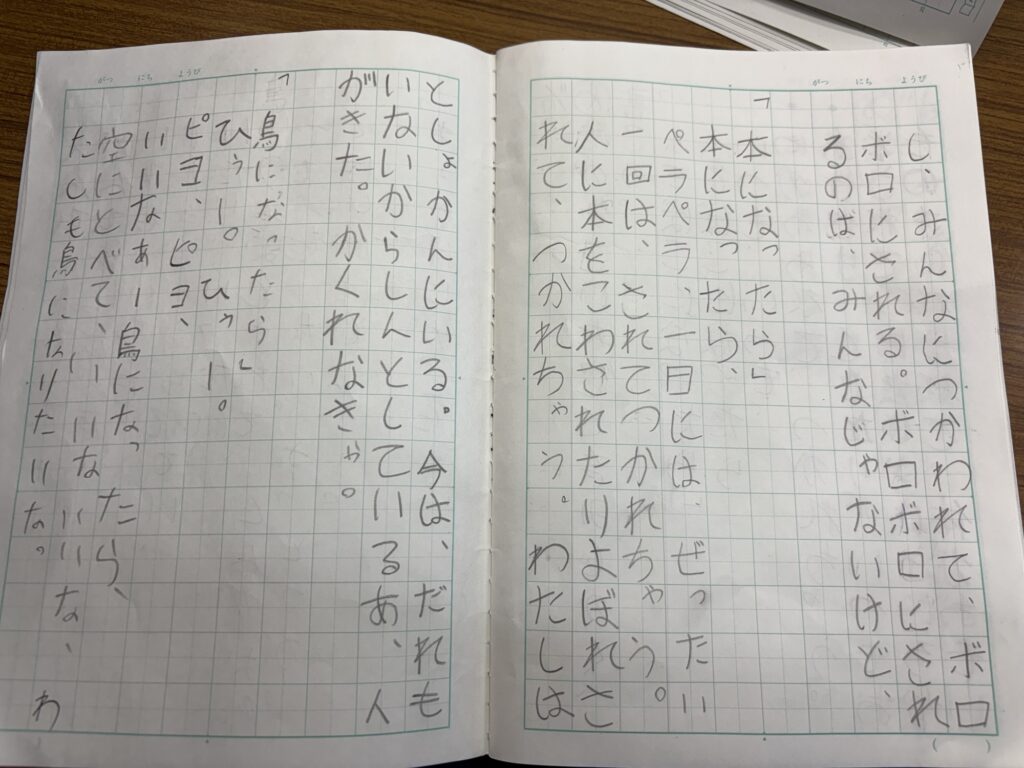 がつ にち ようび
し、みんなにつかわれて、ボロ
ボロにされる。ボロボロにされ
るのは、みんなじゃないけど、
「本になったら」
本になったら、
ペラペラ、一日には、ぜったい
一回は、されてつかれちゃう。
人に本をこわされたりよぼれさ
れて、つかれちゃう。わたしは
がつ にち ようび
としょかんにいる。今は、だれも
いないからしんとしているあ、人
がきた。かくれなきゃ。
「鳥になったら」
ひぅー。ひぅー。
ピヨ、ピヨ、
いいなぁー鳥になったら、
空にとべて、いいないいな、わ
たしも鳥になりたいな。